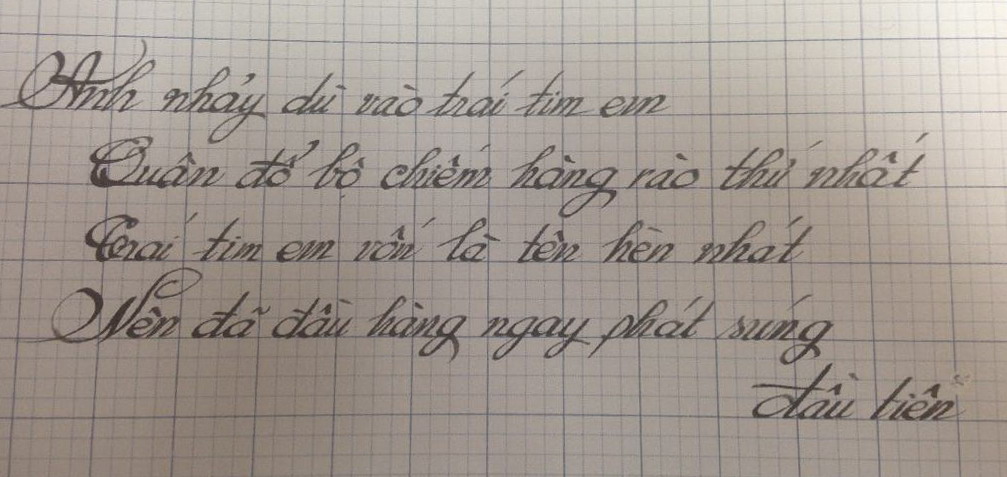 Anh nhảy dù vào trái tim em
Quân đổ bộ chiếm hàng rào thứ nhất
Trái tim em vốn là tên hèn nhát
Nên đã đầu hàng ngay phát súng
đầu tiên